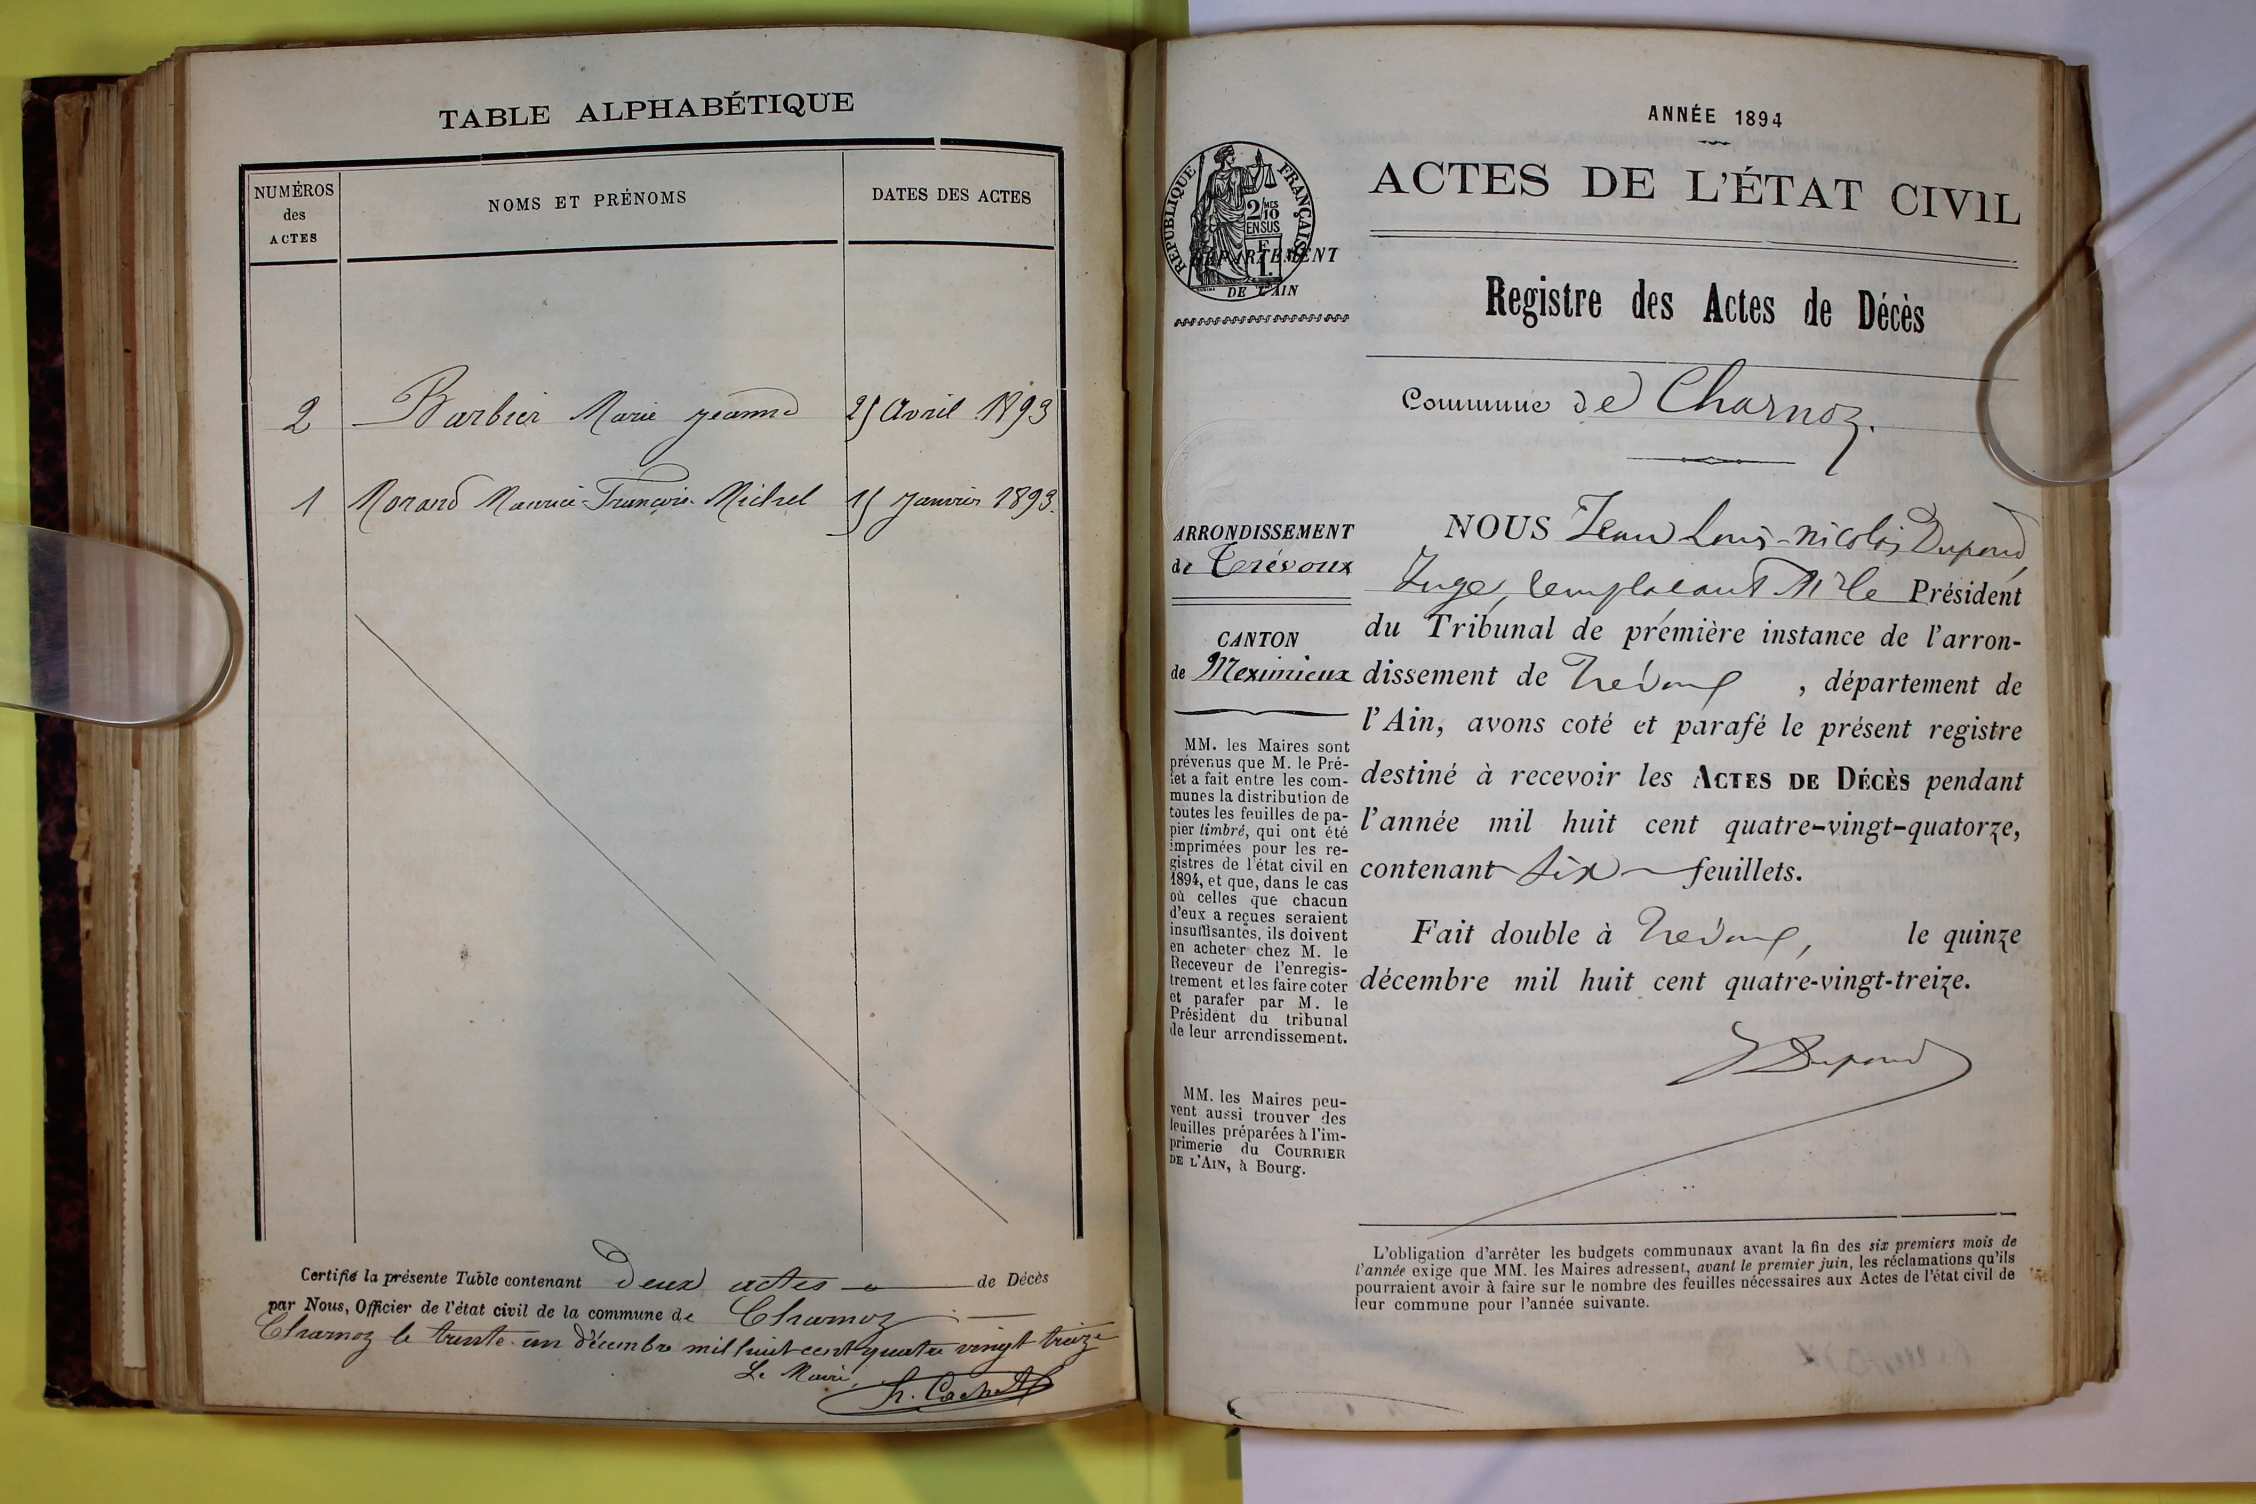 TABLE ALPHABÉTIQUE
NUMÉROS
des
ACTES
NOMS ET PRÉNOMS
DATES DES ACTES
2 Barbier Marie Jeanne 25 Avril 1893
1 Morand Maurice-François-Michel 15 Janvier 1893.
Certifié la présente Table contenant deux actes de Décès
par Nous, Officier de l'état civil de la commune de Charnoz
Charnoz le trente-un décembre mil huit cent quatre vingt treize
Le Maire,
h. Cachet
ANNÉE 1894
ACTES DE L'ÉTAT CIVIL
RÉPUBLIQUE FRANÇAISE
2/10MES
EN SUS
F
1.
DÉPARTEMENT
DE L'AIN
Registre des Actes de Décès
Commune de Charnoz.
ARRONDISSEMENT
de Trévoux
CANTON
de Meximieux
MM. les Maires sont
prévenus que M. le Pré-
fet a fait entre les com-
munes la distribution de
toutes les feuilles de pa-
pier timbré, qui ont été
imprimées pour les re-
gistres de l'état civil en
1894, et que, dans le cas
où celles que chacun
d'eux a reçues seraient
insuffisantes, ils doivent
en acheter chez M. le
Receveur de l'enregis-
trement et les faire coter
et parafer par M. le
Président du tribunal
de leur arrondissement.
MM. les Maires peu-
vent aussi trouver des
feuilles préparées à l'im-
primerie du COURRIER
DE L'AIN, à Bourg.
NOUS Jean Louis-Nicolas Dupond,
Juge, remplaçant Mr le Président
du Tribunal de première instance de l'arron-
dissement de Trévoux, département de
l'Ain, avons coté et parafé le présent registre
destiné à recevoir les ACTES DE DÉCÈS pendant
l'année mil huit cent quatre-vingt-quatorze,
contenant six feuillets.
Fait double à Trévoux, le quinze
décembre mil huit cent quatre-vingt-treize.
Dupond
L'obligation d'arrêter les budgets communaux avant la fin des six premiers mois de
l'année exige que MM. les Maires adressent, avant le premier juin, les réclamations qu'ils
pourraient avoir à faire sur le nombre des feuilles nécessaires aux Actes de l'état civil de
leur commune pour l'année suivante.